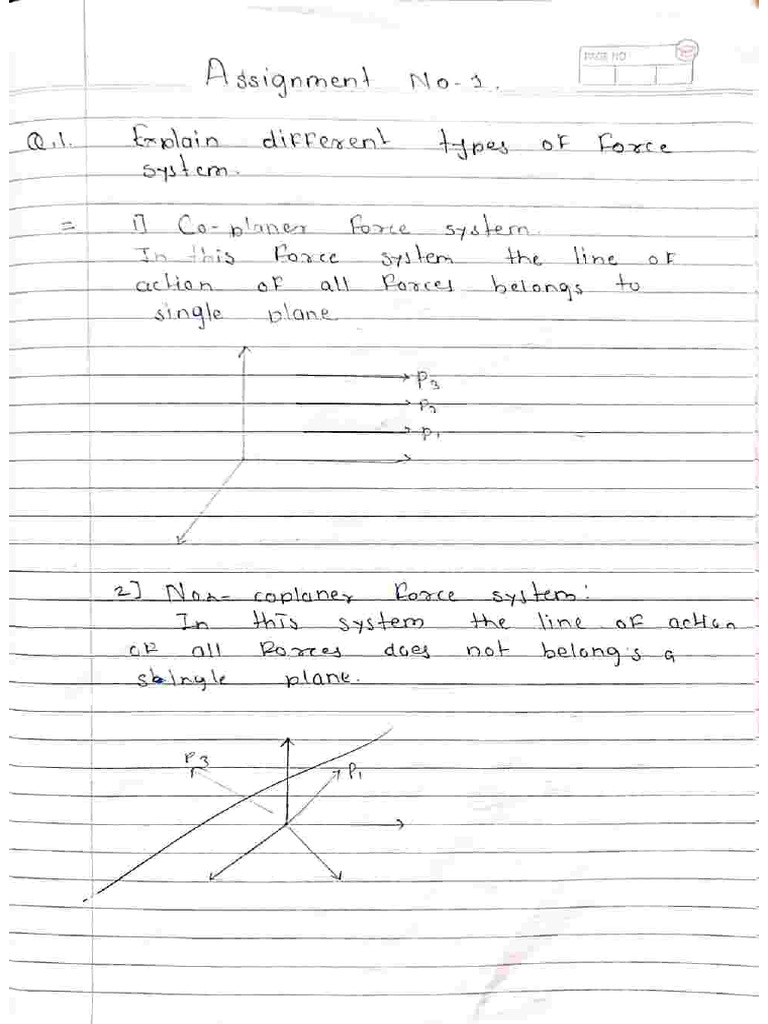 PAGE NO
Assignment No-1.
Q.1. Explain different types of Force
system.
= 1] Co-planer Force system.
In this Force system the line of
action of all Forces belongs to
single plane
P3
P2
P1
2] Non-coplaner Force system:
In this system the line of action
of all Forces does not belong's a
single plane.
P3
P1